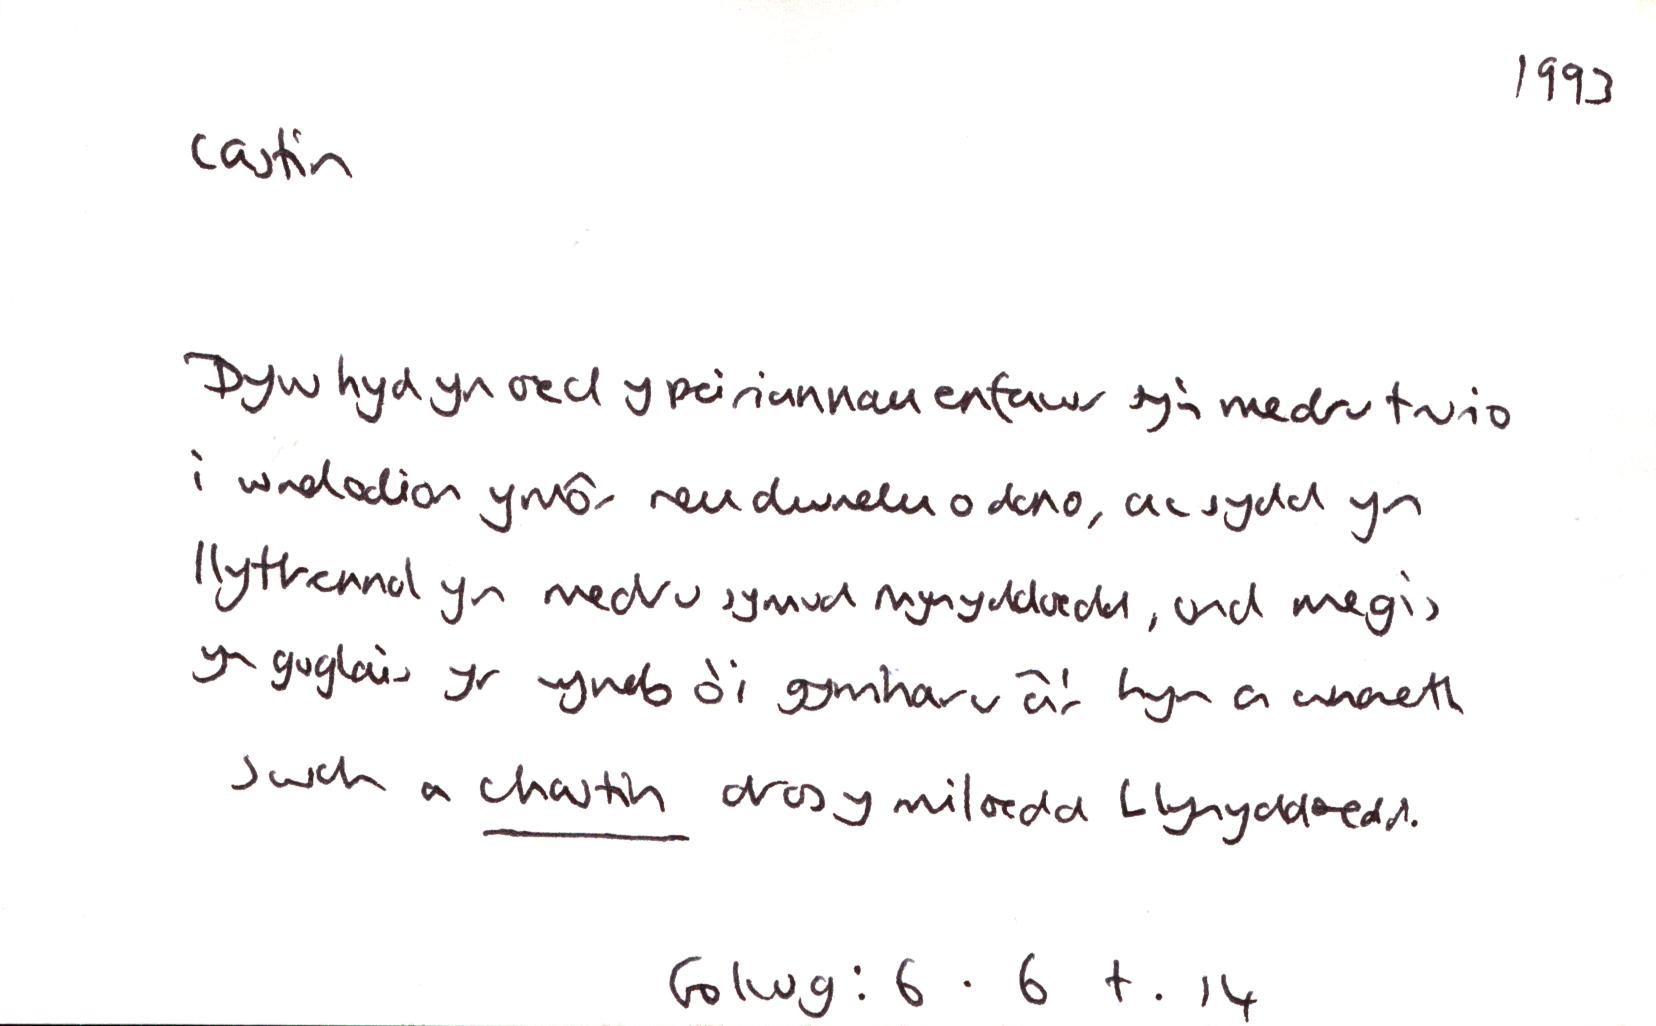 1993
castin
Dyw hyd yn oed y peiriannau enfawr sy'n medru turio
i waelodion y môr neu dwnelu o dano, ac sydd yn
llythrennol yn medru symud mynyddoedd, ond megis
yn goglais yr wyneb o'i gymharu â'r hyn a wnaeth
swch a chastin dros y miloedd blynyddoedd.
Golwg: 6 . 6 t. 14